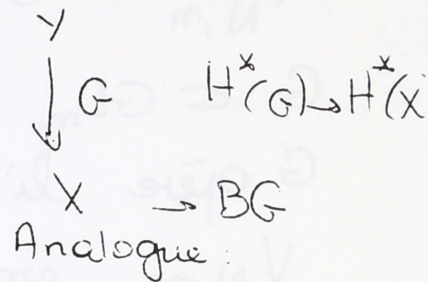 Y
↓ G H*(G) → H*(X
X → BG
Analogue :